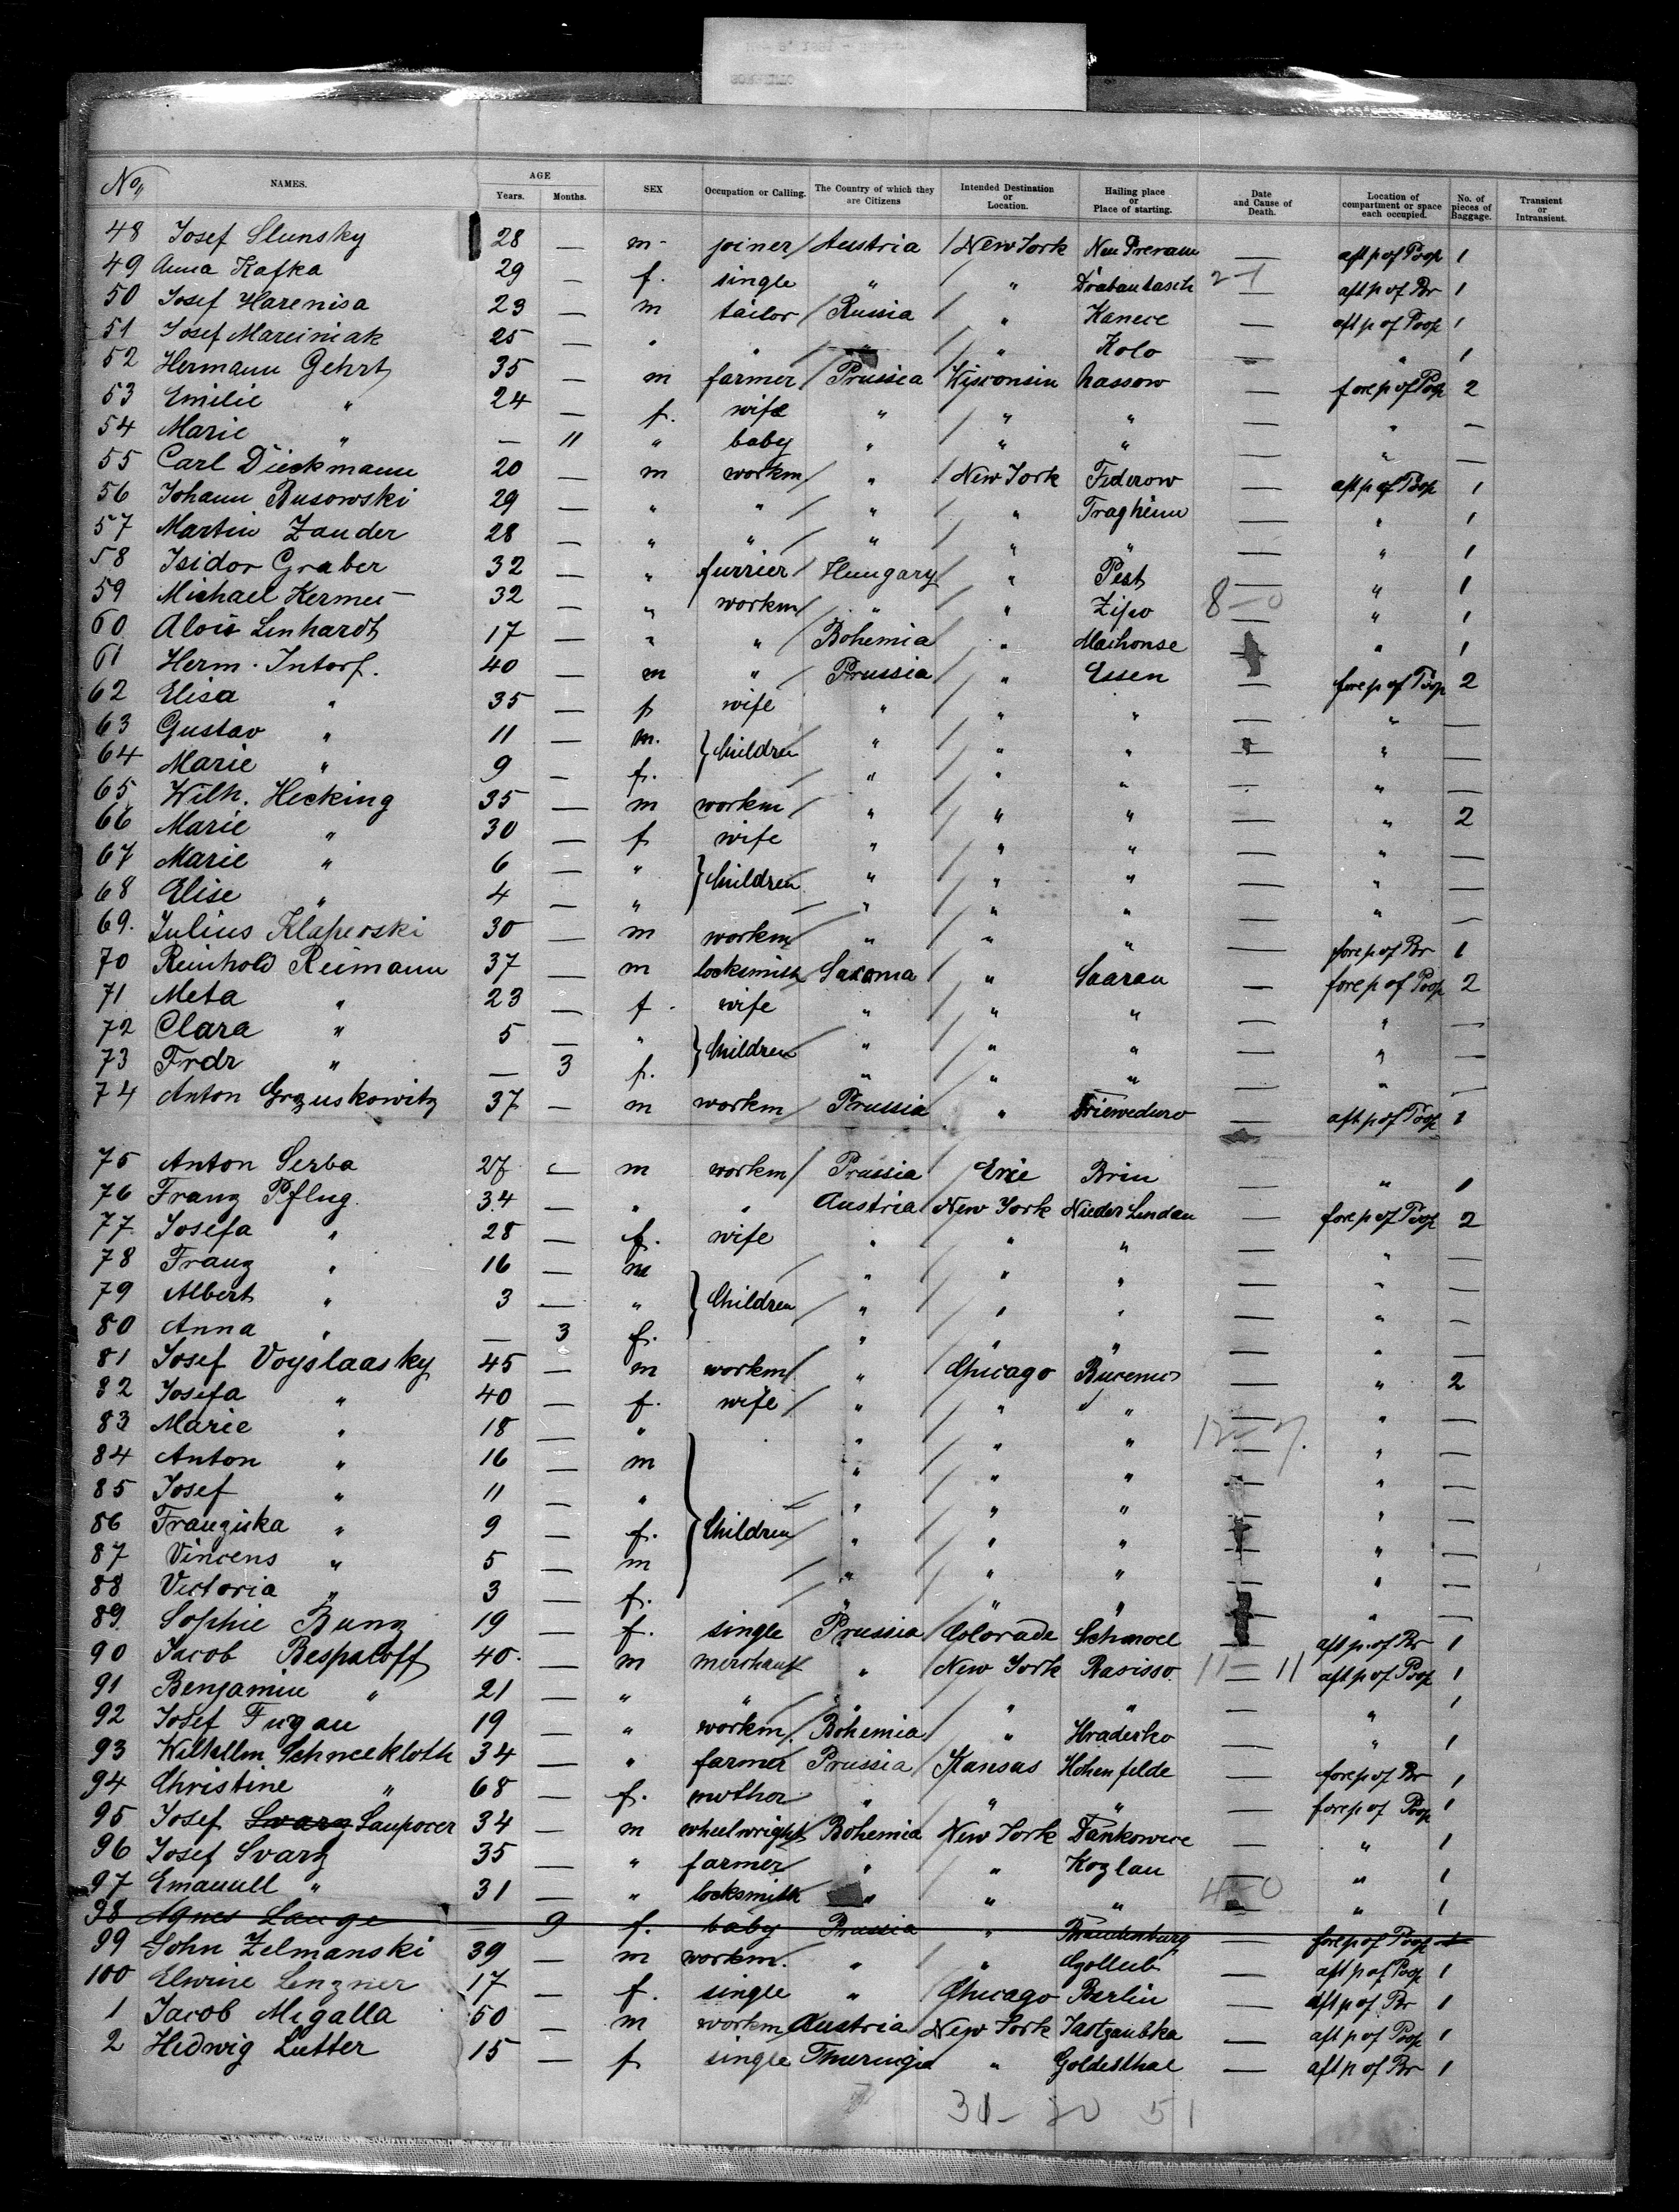 No,, NAMES. AGE Years. Months. SEX Occupation or Calling. The Country of which they are Citizens Intended Destination or Location. Hailing place or Place of starting. Date and Cause of Death. Location of compartment or space each occupied. No. of pieces of Baggage. Transient or Intransient.
48 Josef Slunsky 28 — m. joiner Austria New York Neu Prerau — aft p of Poop 1
49 Anna Kafka 29 — f. single " " 2-1 aft p of Br 1
50 Josef Harenisa 23 — m tailor Russia " Kanece — aft p of Poop 1
51 Josef Marciniak 25 — " " " " Kolo — " 1
52 Hermann Gehrt 35 — m farmer Prussia Wisconsin Nassow — fore p of Poop 2
53 Emilie " 24 — f. wife " " " — " —
54 Marie " — 11 " baby " " " — " —
55 Carl Dieckmann 20 — m workm " New York Federow — aft p of Poop 1
56 Johann Busowski 29 — " " " " Tragheim — " 1
57 Martin Zander 28 — " " " " " — " 1
58 Isidor Graber 32 — " furrier Hungary " Pest — " 1
59 Michael Kermet 32 — " workm " " Zipo 8-0 " 1
60 Alois Lenhardt 17 — " " Bohemia " Maihonse — " 1
61 Herm. Intorf. 40 — m " Prussia " Essen — fore p of Poop 2
62 Elisa " 35 — f wife " " " — " —
63 Gustav " 11 — m. Children " " " — " —
64 Marie " 9 — f. " " " — " —
65 Wilh. Hecking 35 — m workm " " " — " 2
66 Marie " 30 — f wife " " " — " —
67 Marie " 6 — " Children " " " — " —
68 Elise " 4 — " " " " — " —
69. Julius Klaperski 30 — m workm " " " — fore p of Br 1
70 Reinhold Reimann 37 — m locksmith Saxonia " Saarau — fore p of Poop 2
71 Meta " 23 — f. wife " " " — " —
72 Clara " 5 — " Children " " " — " —
73 Frdr " — 3 f. " " " — " —
74 Anton Grzuskowitz 37 — m workm Prussia " — aft p of Poop 1
75 Anton Serba 27 — m workm Prussia Erie Brin — " 1
76 Franz Pflug. 34 — " " Austria New York Nieder Lindau — fore p of Poop 2
77. Josefa " 28 — f. wife " " " — " —
78 Franz " 16 — m " " " — " —
79 Albert " 3 — " Children " " " — " —
80 Anna " — 3 f. " " " — " —
81 Josef Voyslaasky 45 — m workm " Chicago — " 2
82 Josefa " 40 — f. wife " " " — " —
83 Marie " 18 — " " " " 12-7. " —
84 Anton " 16 — m " " " — " —
85 Josef " 11 — " " " " — " —
86 Franziska " 9 — f. Children " " " — " —
87 Vincens " 5 — m " " " — " —
88 Victoria " 3 — f. " " " — " —
89. Sophie Bunz 19 — f. single Prussia Colorade Schmoel — aft p. of Br 1
90 Jacob Bespaloff 40. — m merchant " New York Rasisso. 11-11 aft p of Poop 1
91 Benjamin " 21 — " " " " " — " 1
92 Josef Fugau 19 — " workm. Bohemia " Hradisko — " 1
93 Wilhellm Schneekloth 34 — " farmer Prussia Kansas Hohenfelde — fore p of Br 1
94 Christine " 68 — f. mother " " " — fore p of Poop 1
95 Josef Svarz Saupocer 34 — m wheelwright Bohemia New York Dankowice — " 1
96 Josef Svarz 35 — " farmer " " Kozlau — " 1
97 Emanull " 31 — " locksmith " " " 4-0 " 1
98 Agnes Lange — 9 f. baby Prussia " Brandenburg — fore p of Poop 1
99 John Zelmanski 39 — m workm. " " Gollub — aft p of Poop 1
100 Elwine Lenzner 17 — f. single " Chicago Berlin — aft p of Br 1
1 Jacob Migalla 50 — m workm Austria New York Jastzaubka — aft p of Poop 1
2 Hedwig Lutter 15 — f single Thuringia " Goldesthal — aft p of Br 1
31-20 51